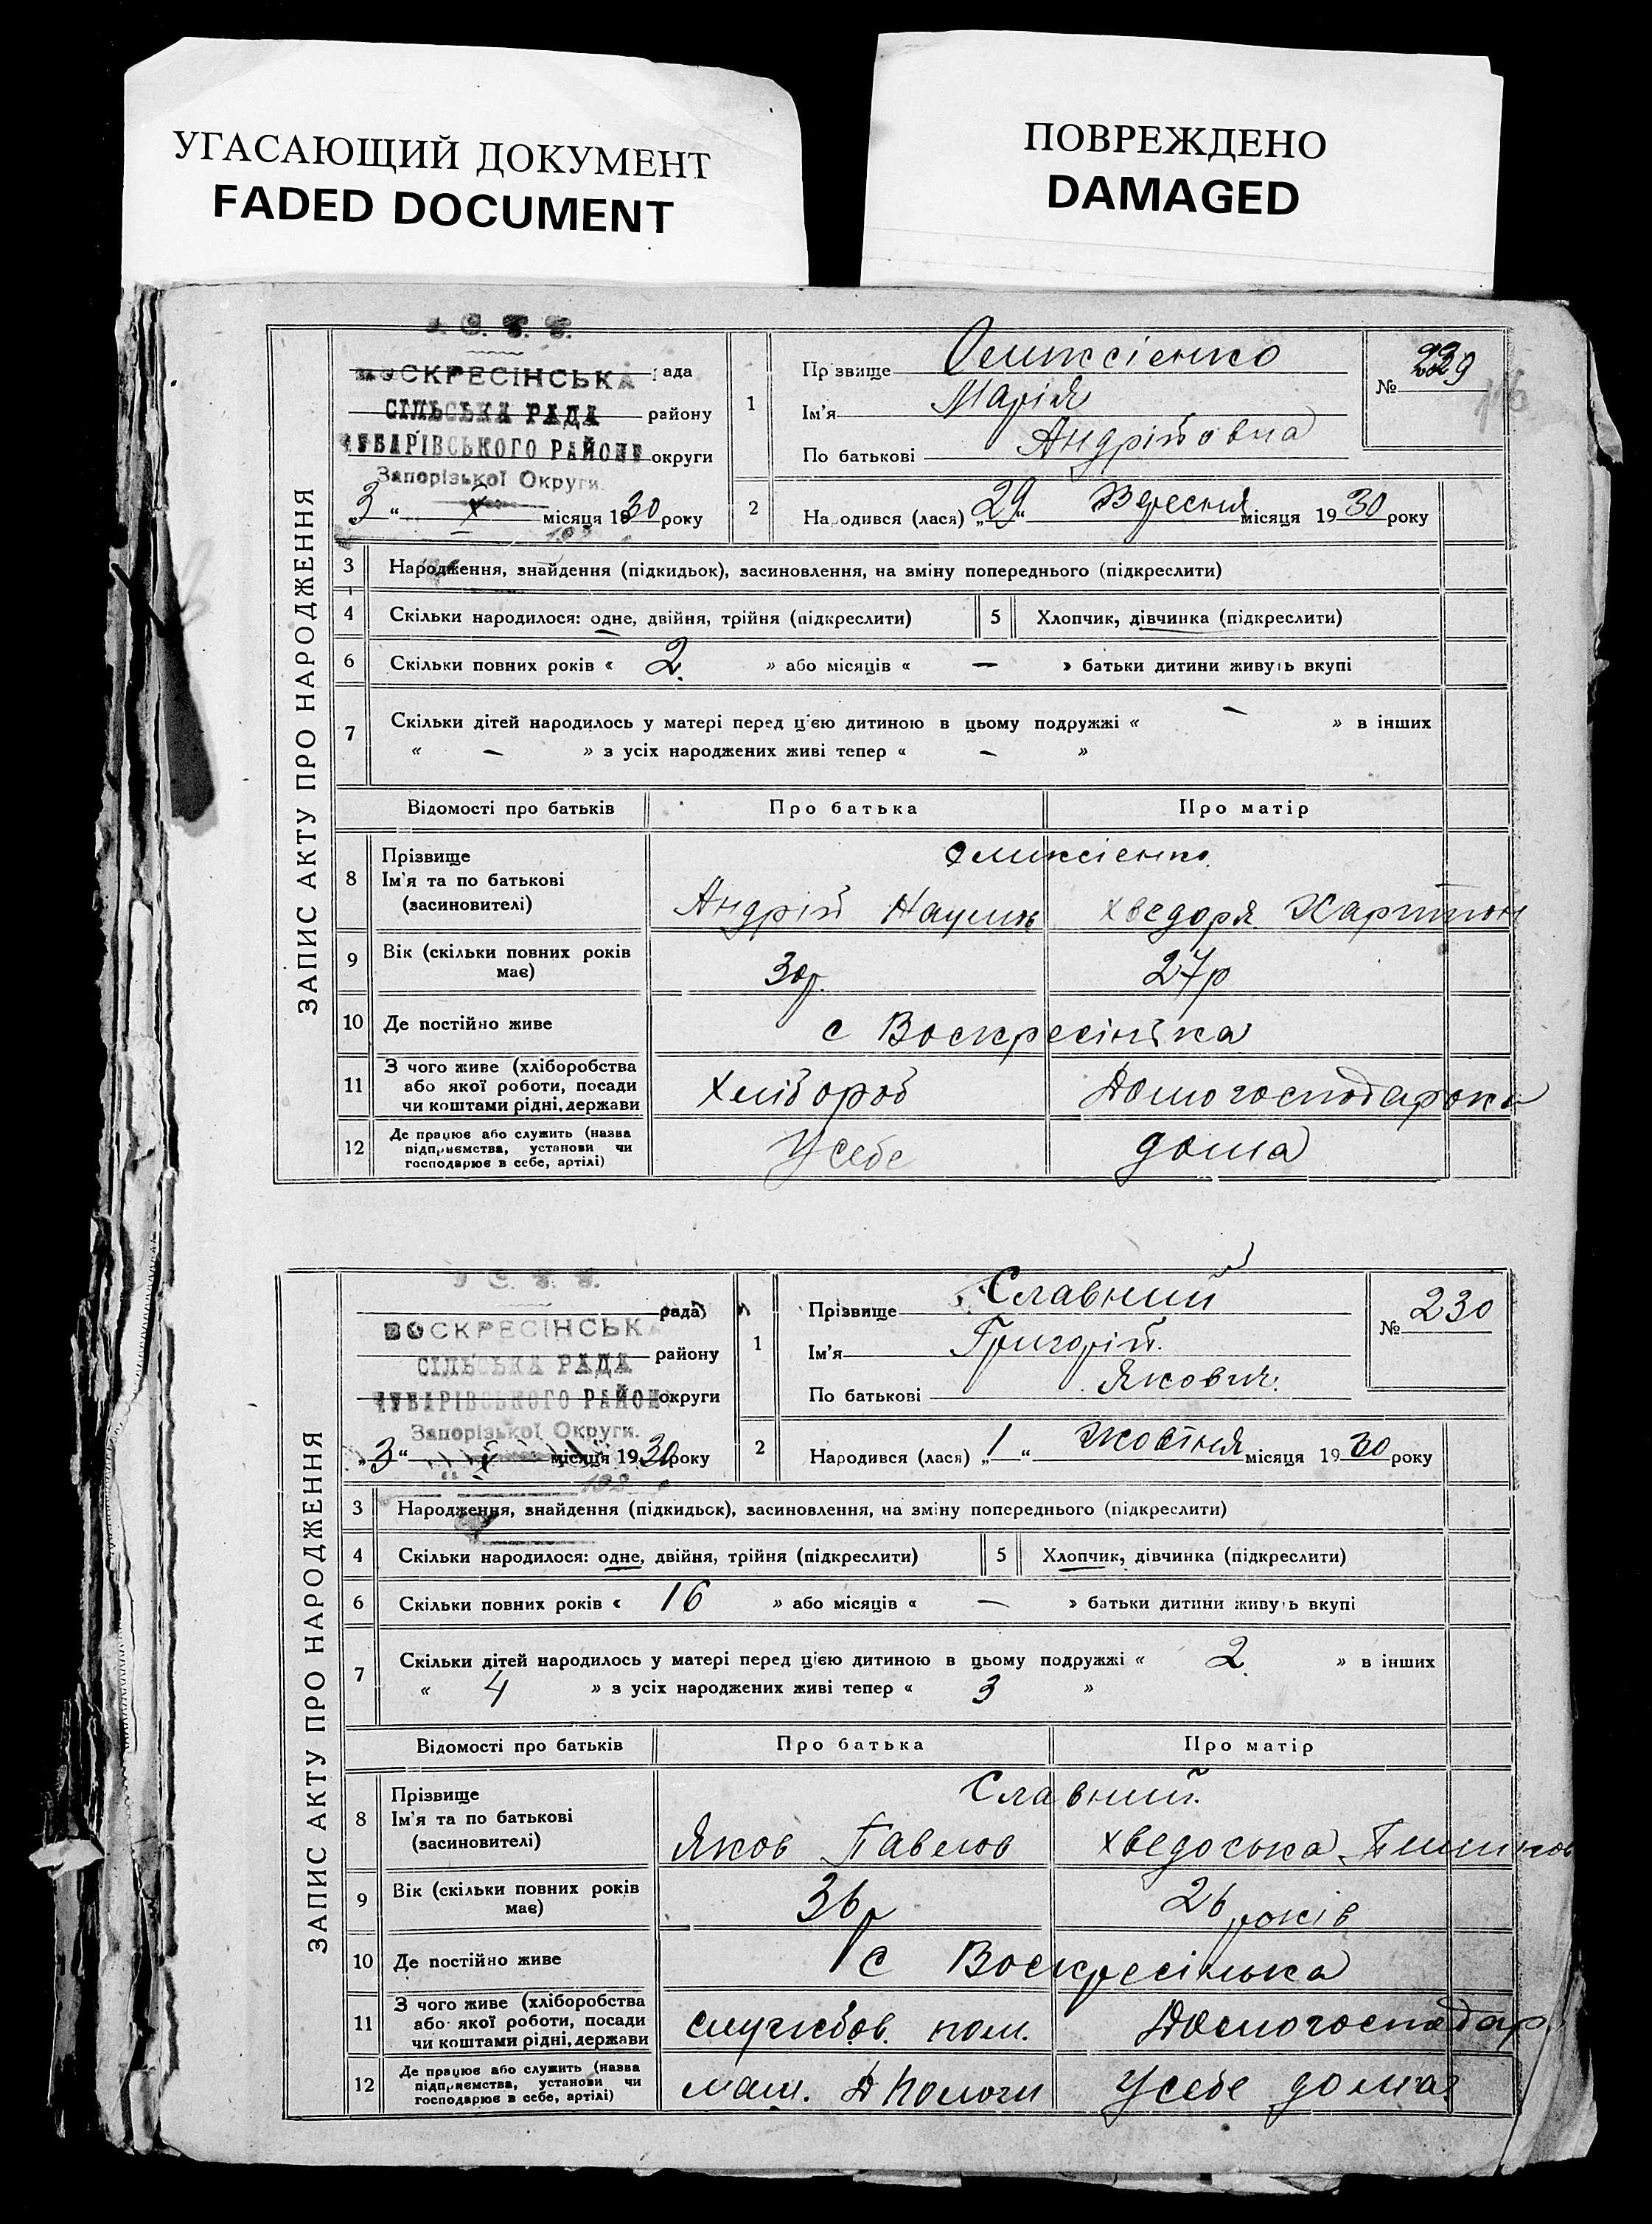 УГАСАЮЩИЙ ДОКУМЕНТ
FADED DOCUMENT
ПОВРЕЖДЕНО
DAMAGED
ЗАПИС АКТУ ПРО НАРОДЖЕННЯ
У. С. Р. Р.
ВОСКРЕСІНСЬКА рада
СІЛЬСЬКА РАДА району
ЧУБАРІВСЬКОГО РАЙОНУ округи
Запорізької Округи.
„3“ X місяця 1930 року
1
Прізвище Оликсієнко
Ім'я Марія
По батькові Андрійовна
№ 229
2
Народився (лася) „29“ Вересня місяця 1930 року
3 Народження, знайдення (підкидьок), засиновлення, на зміну попереднього (підкреслити)
4 Скільки народилося: одне, двійня, трійня (підкреслити) 5 Хлопчик, дівчинка (підкреслити)
6 Скільки повних років « 2 » або місяців « — » батьки дитини живуть вкупі
7 Скільки дітей народилось у матері перед цією дитиною в цьому подружжі « — » в інших
« — » з усіх народжених живі тепер « — »
Відомості про батьків Про батька Про матір
8 Прізвище Оликсієнко
Ім'я та по батькові
(засиновителі) Андрій Наумов Хведоря Харитон
9 Вік (скільки повних років має) 30р. 27р
10 Де постійно живе с Воскресінька
11 З чого живе (хліборобства
або якої роботи, посади
чи коштами рідні, держави Хлібороб Домогосподарока
12 Де працює або служить (назва
підприємства, установи чи
господарює в себе, артілі) У себе дома
ЗАПИС АКТУ ПРО НАРОДЖЕННЯ
У. С. Р. Р.
рада
ВОСКРЕСІНСЬКА
району
СІЛЬСЬКА РАДА
ЧУБАРІВСЬКОГО РАЙОНУ округи
Запорізької Округи.
„3“ X місяця 1930 року
1
Прізвище Славний
Ім'я Григорій.
По батькові Якович.
№ 230
2
Народився (лася) „1“ Жовтня місяця 1930 року
3 Народження, знайдення (підкидьок), засиновлення, на зміну попереднього (підкреслити)
4 Скільки народилося: одне, двійня, трійня (підкреслити) 5 Хлопчик, дівчинка (підкреслити)
6 Скільки повних років « 16 » або місяців « — » батьки дитини живуть вкупі
7 Скільки дітей народилось у матері перед цією дитиною в цьому подружжі « 2 » в інших
« 4 » з усіх народжених живі тепер « 3 »
Відомості про батьків Про батька Про матір
8 Прізвище Славний.
Ім'я та по батькові
(засиновителі) Яков Павелов Хведоська
9 Вік (скільки повних років має) 36р 26 років
10 Де постійно живе с Воскресінька
11 З чого живе (хліборобства
або якої роботи, посади
чи коштами рідні, держави службов. пом. Домогосподар.
12 Де працює або служить (назва
підприємства, установи чи
господарює в себе, артілі) У себе дома